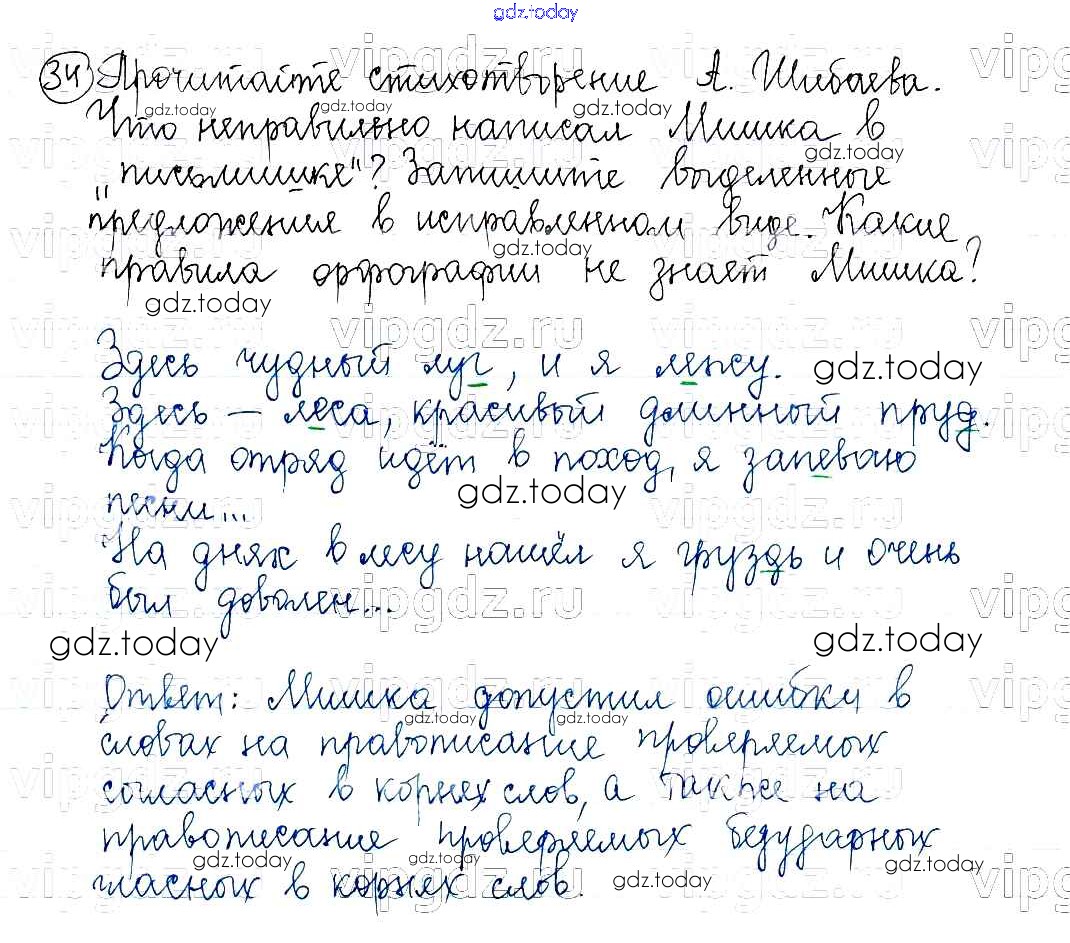 gdz.today
34 Прочитайте стихотворение А. Шибаева.
Что неправильно написал Мишка в
„письмишке"? Запишите выделенные
предложения в исправленном виде. Какие
правила орфографии не знает Мишка?
Здесь чудный луг, и я лежу.
Здесь – леса, красивый длинный пруд.
Когда отряд идёт в поход, я запеваю
песни...
На днях в лесу нашёл я груздь и очень
был доволен...
Ответ: Мишка допустил ошибки в
словах на правописание проверяемых
согласных в корнях слов, а также на
правописание проверяемых безударных
гласных в корнях слов.